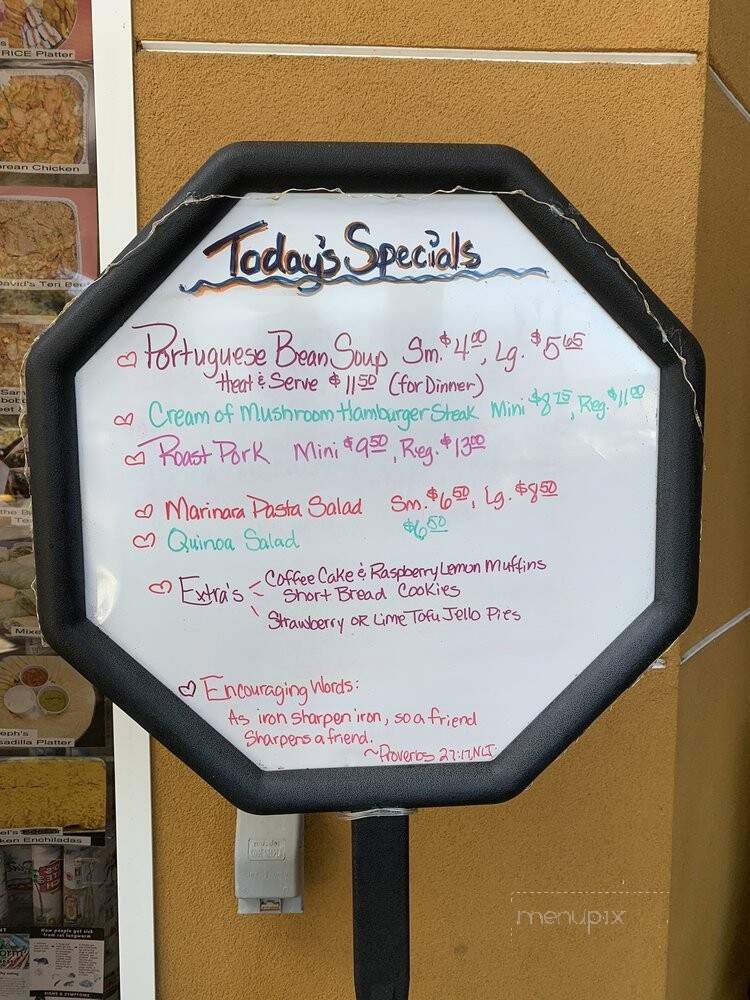 RICE Platter
rean Chicken
avid's Teri Bee
Today's Specials
Portuguese Bean Soup Sm. $4.00, Lg. $5.65
Heat & Serve $11.50 (for Dinner)
Cream of Mushroom Hamburger Steak Mini $8.75, Reg. $11.00
Roast Pork Mini $9.50, Reg. $13.00
Marinara Pasta Salad Sm. $6.50, Lg. $8.50
Quinoa Salad $6.50
Extra's Coffee Cake & Raspberry Lemon Muffins
Short Bread Cookies
Strawberry or Lime Tofu Jello Pies
Encouraging Words:
As iron sharpen iron, so a friend
Sharpens a friend.
~Proverbs 27:17, NLT
Mixe
eph's
sadilla Platter
ken Enchiladas
How people get sick
from rat lungworm
SIGNS & SYMPTOMS
menupix